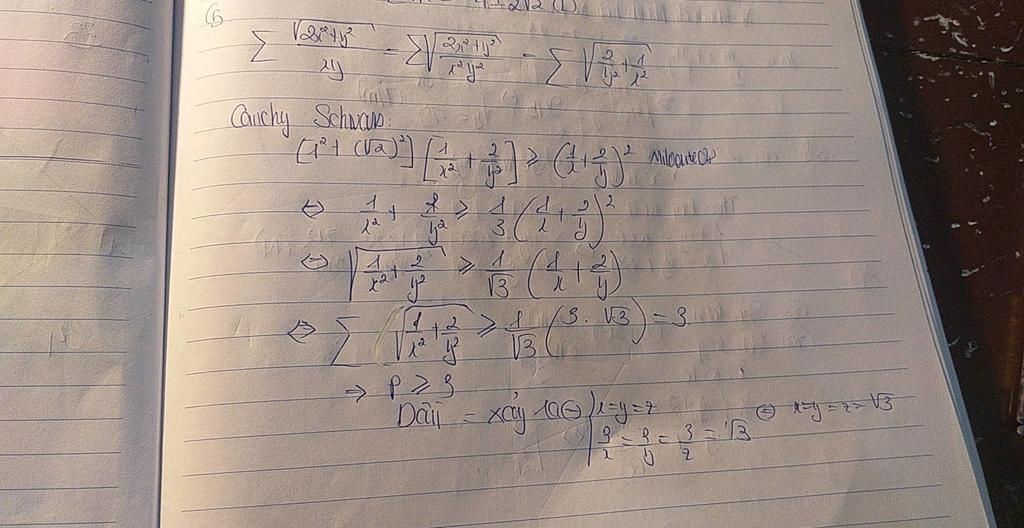 6
∑ √(2x²+y²) / xy = ∑ √((2x²+y²) / x²y²) = ∑ √(2/y² + 1/x²)
Cauchy Schwars:
[1² + (√2)²] [1/x² + 2/y²] ≥ (1/x + 2/y)²
⇔ 1/x² + 2/y² ≥ 1/3 (1/x + 2/y)²
⇔ √(1/x² + 2/y²) ≥ 1/√3 (1/x + 2/y)
⇔ ∑ √(1/x² + 2/y²) ≥ 1/√3 (3 . √3) = 3
⇒ P ≥ 3
Dấu = xảy ra ⇔ x=y=z ⇔ x=y=z=√3
3/x = 3/y = 3/z = √3